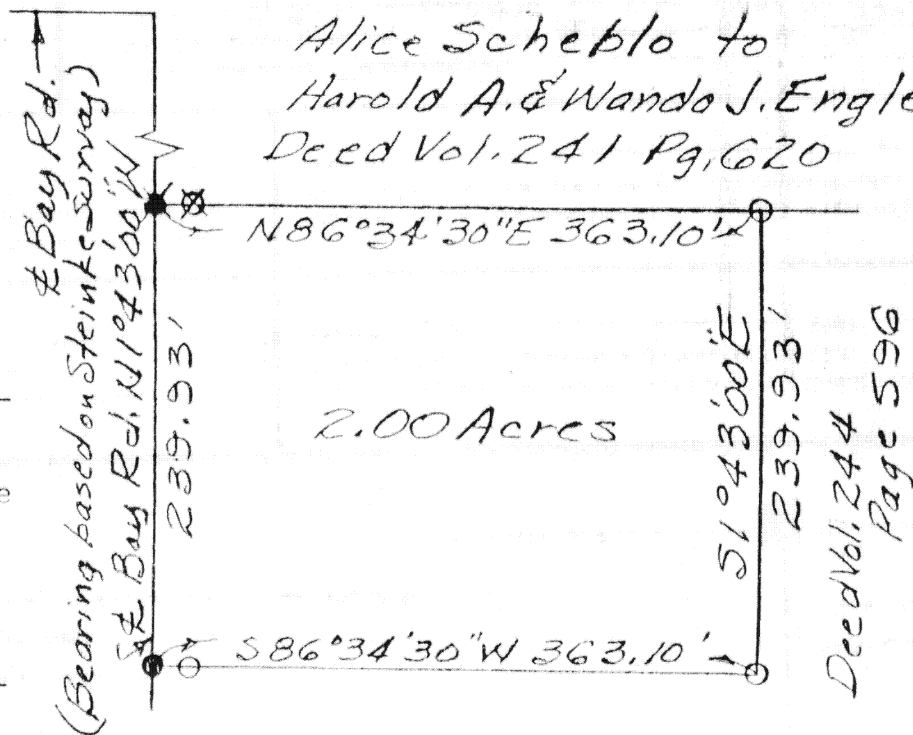 Alice Scheblo to
Harold A. & Wanda J. Engle
Deed Vol. 241 Pg. 620
℄ Bay Rd.
(Bearing based on Steinke survay)
℄ Bay Rd. N1°43'00"W
239.93'
N86°34'30"E 363.10'
2.00 Acres
S1°43'00"E
239.93'
Deed Vol. 244
Page 596
S86°34'30"W 363.10'